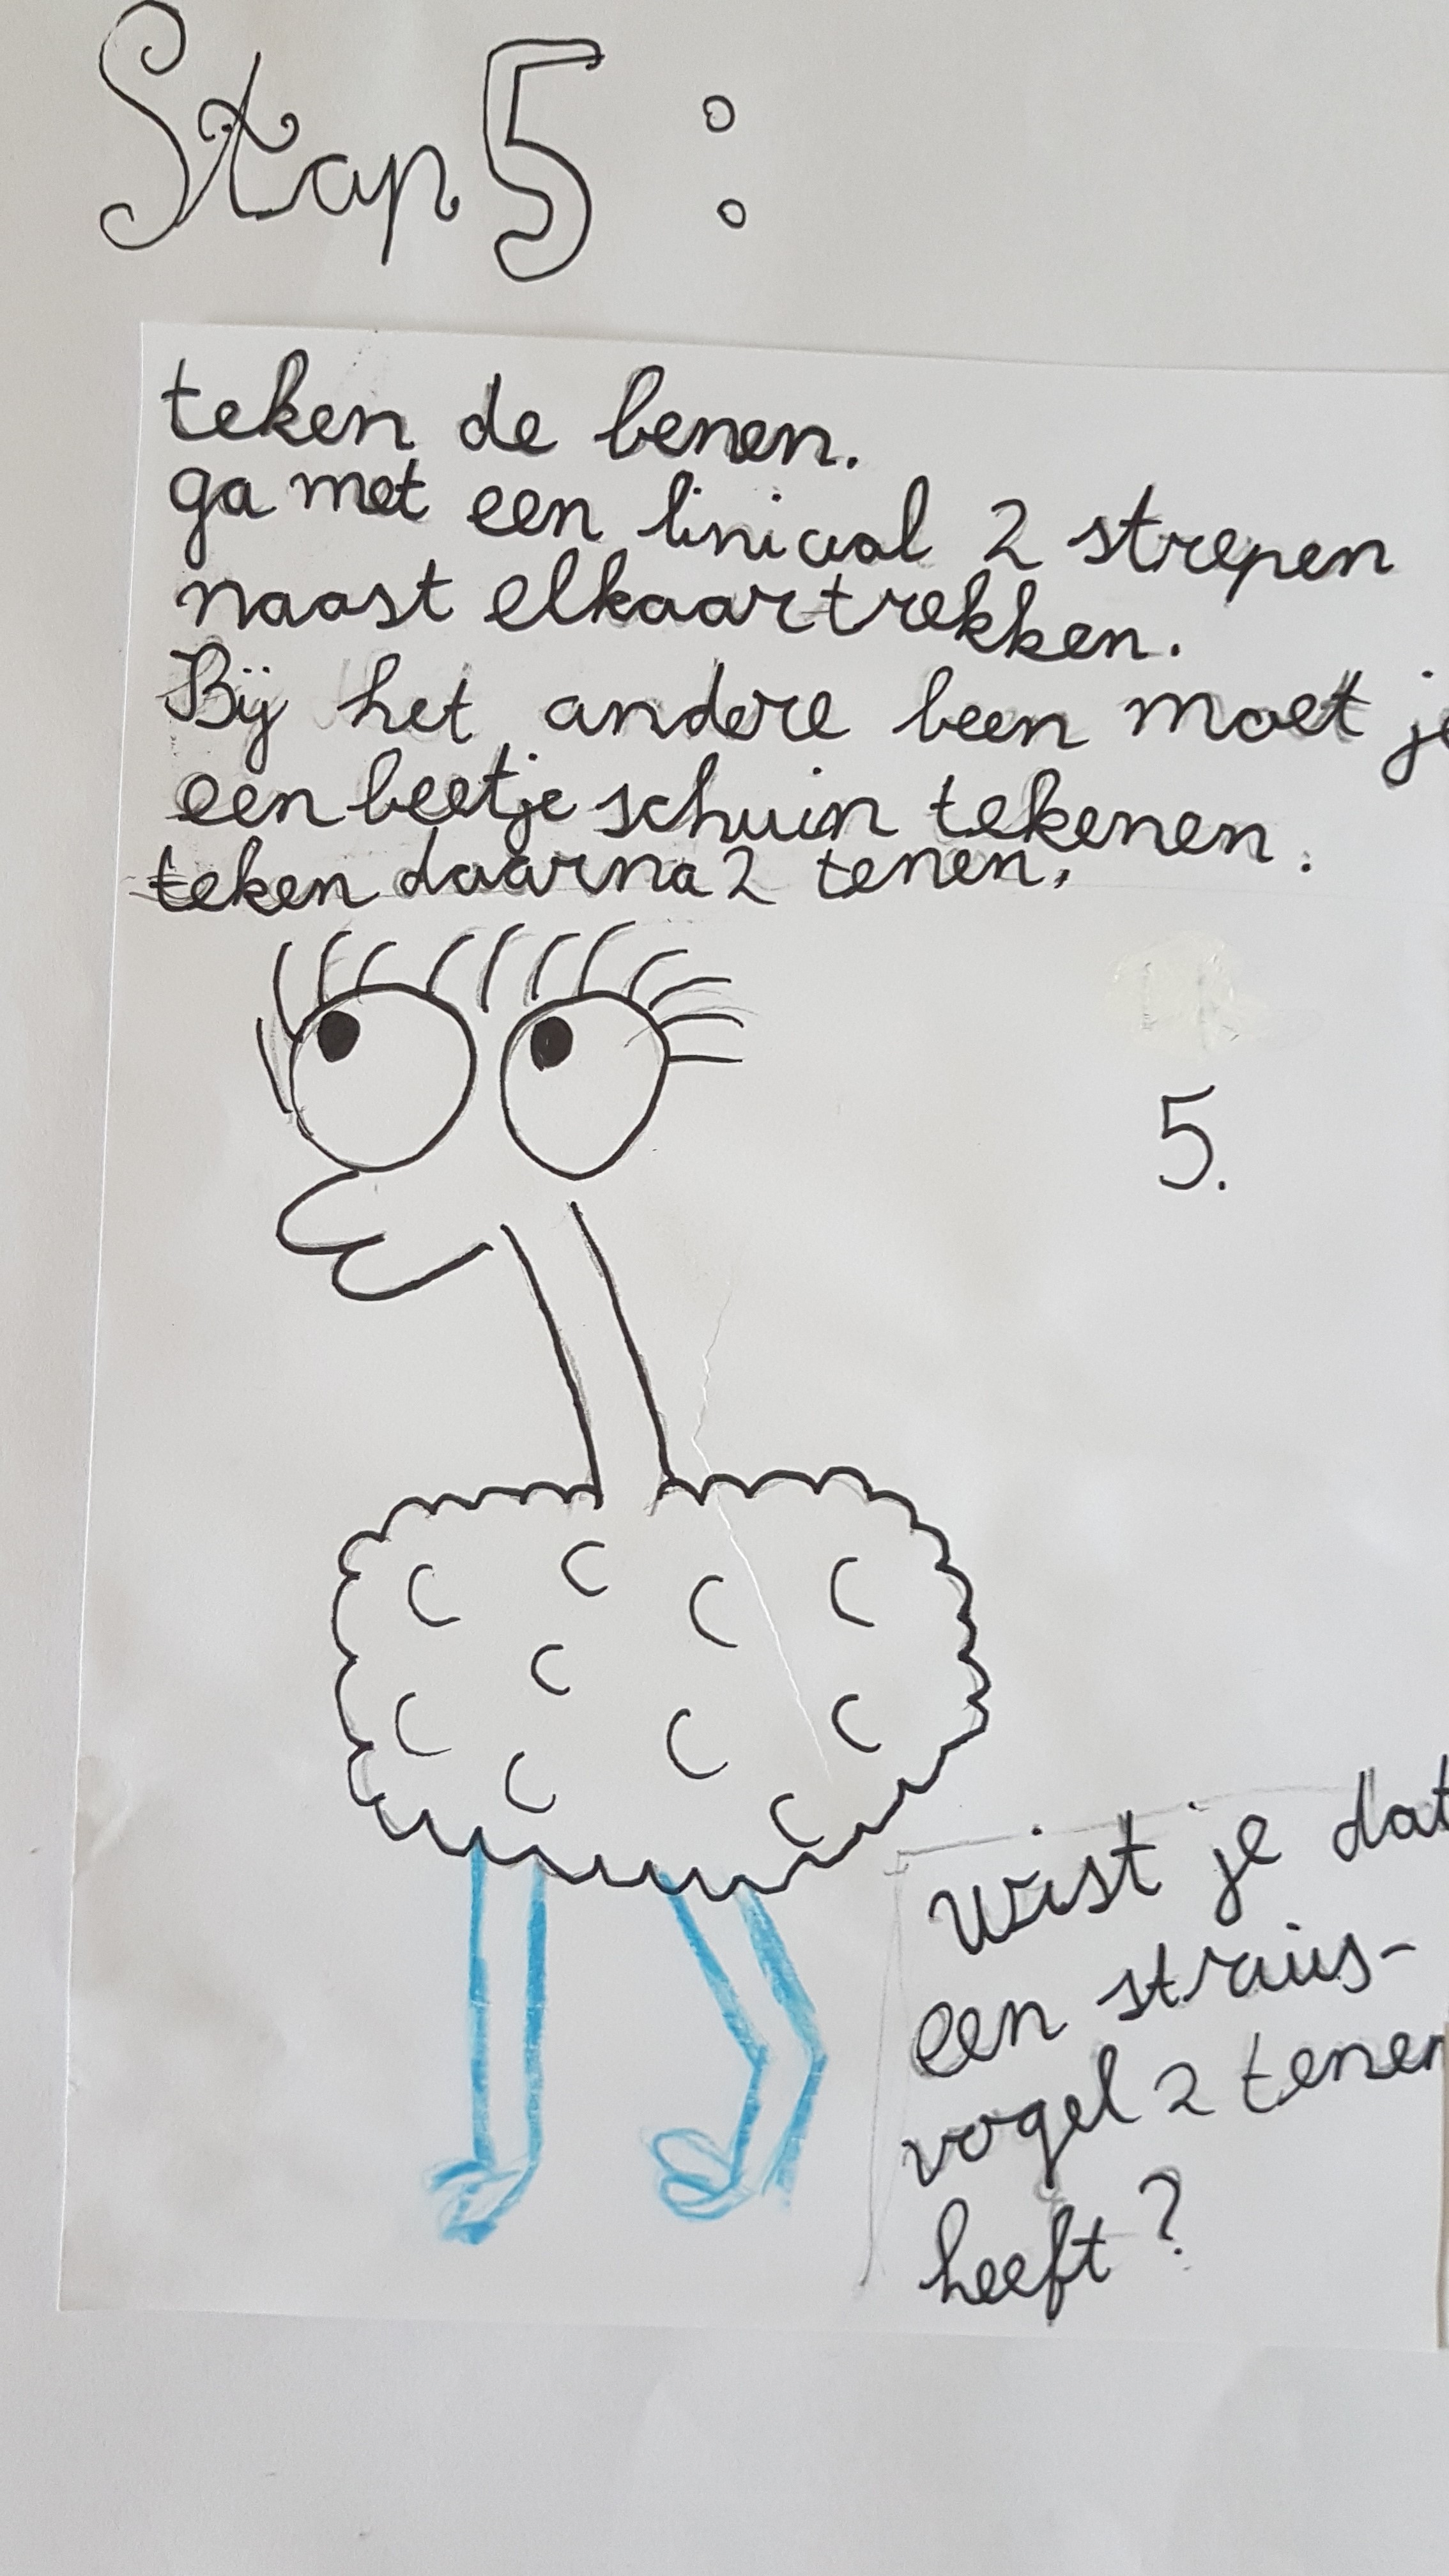 Stap 5 :
teken de benen.
ga met een liniaal 2 strepen
naast elkaar trekken.
Bij het andere been moet je
een beetje schuin tekenen.
teken daarna 2 tenen.
5.
Wist je dat
een struis-
vogel 2 tenen
heeft?